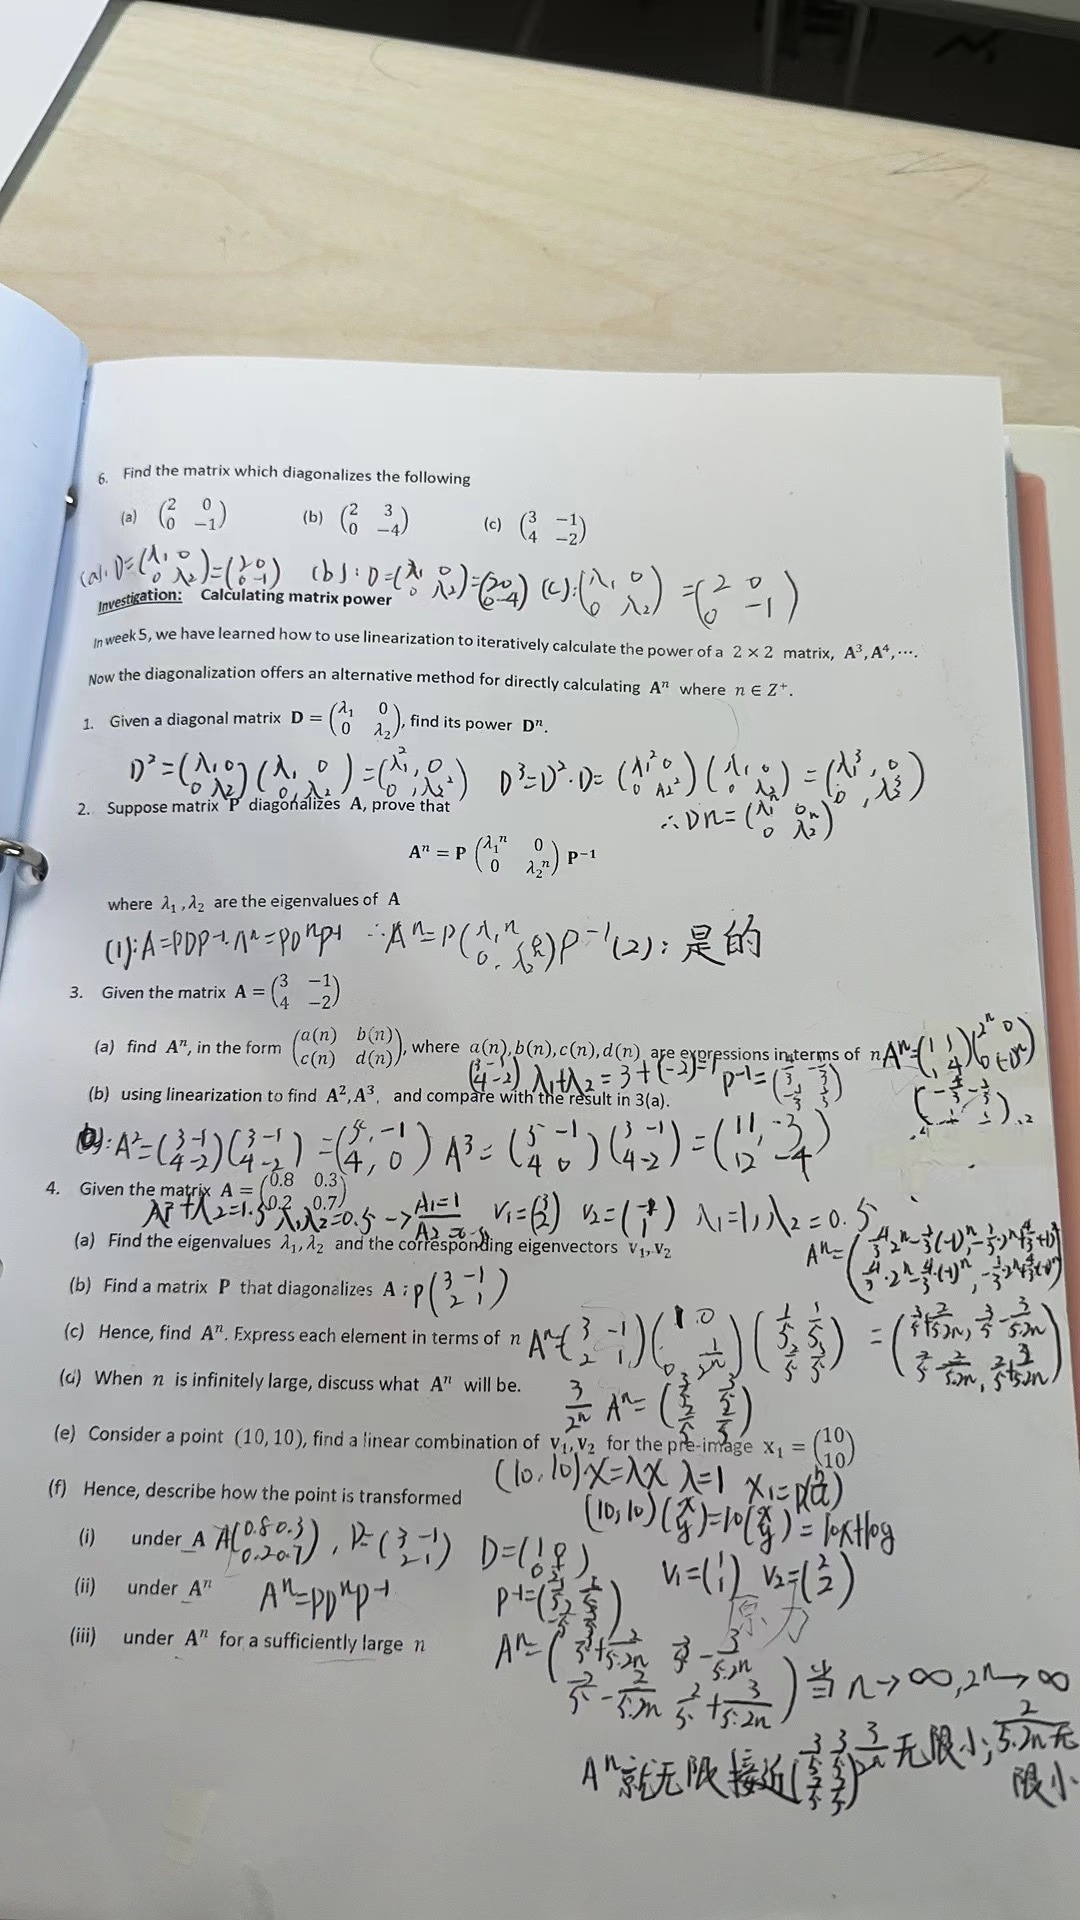 6. Find the matrix which diagonalizes the following
(a) (2 0 / 0 −1) (b) (2 3 / 0 −4) (c) (3 −1 / 4 −2)
(a): D=(λ₁ 0 / 0 λ₂)=(2 0 / 0 -1) (b): D=(λ₁ 0 / 0 λ₂)=(2 0 / 0 -4) (c):(λ₁ 0 / 0 λ₂)=(2 0 / 0 -1)
Investigation: Calculating matrix power
In week 5, we have learned how to use linearization to iteratively calculate the power of a 2 × 2 matrix, A³, A⁴, ⋯.
Now the diagonalization offers an alternative method for directly calculating Aⁿ where n ∈ Z⁺.
1. Given a diagonal matrix D = (λ₁ 0 / 0 λ₂), find its power Dⁿ.
D²=(λ₁ 0 / 0 λ₂)(λ₁ 0 / 0, λ₂)=(λ₁², 0 / 0, λ₂²) D³=D²·D=(λ₁² 0 / 0 λ₂²)(λ₁ 0 / 0 λ₂)=(λ₁³, 0 / 0, λ₂³)
∴Dn=(λ₁ⁿ 0 / 0 λ₂ⁿ)
2. Suppose matrix P diagonalizes A, prove that
Aⁿ = P (λ₁ⁿ 0 / 0 λ₂ⁿ) P⁻¹
where λ₁, λ₂ are the eigenvalues of A
(1): A=PDP⁻¹ Aⁿ=PDⁿP⁻¹ ∴Aⁿ=P(λ₁ⁿ / 0, λ₂ⁿ)P⁻¹ (2): 是的
3. Given the matrix A = (3 −1 / 4 −2)
(a) find Aⁿ, in the form (a(n) b(n) / c(n) d(n)), where a(n), b(n), c(n), d(n) are expressions in terms of n Aⁿ=(1 1 / 1 4)(2ⁿ 0 / 0 (-1)ⁿ)
(3 -1 / 4 -2) λ₁+λ₂=3+(-2)=1 P⁻¹=(4/3 -1/3 / -1/3 1/3)
(b) using linearization to find A², A³, and compare with the result in 3(a).
(b): A²=(3 -1 / 4 -2)(3 -1 / 4 -2)=(5, -1 / 4, 0) A³=(5 -1 / 4 0)(3 -1 / 4 -2)=(11, -3 / 12 -4)
4. Given the matrix A = (0.8 0.3 / 0.2 0.7)
λ₁+λ₂=1.5 λ₁λ₂=0.5 → λ₁=1 V₁=(3 / 2) V₂=(-1 / 1) λ₁=1, λ₂=0.5
(a) Find the eigenvalues λ₁, λ₂ and the corresponding eigenvectors v₁, v₂
Aⁿ=(4/3·2ⁿ-1/3(-1)ⁿ, -1/3·2ⁿ+1/3(-1)ⁿ / 4/3·2ⁿ-4/3·(-1)ⁿ, -1/3·2ⁿ+4/3(-1)ⁿ)
(b) Find a matrix P that diagonalizes A : P(3 -1 / 2 1)
(c) Hence, find Aⁿ. Express each element in terms of n Aⁿ=(3 -1 / 2 1)(1 0 / 0 1/2ⁿ)(1/5 1/5 / -2/5 3/5) =(3/5+2/5·2n, 3/5-3/5·2n / 2/5-2/5·2n, 2/5+3/5·2n)
(d) When n is infinitely large, discuss what Aⁿ will be. 3/2ⁿ Aⁿ=(3/5 3/5 / 2/5 2/5)
(e) Consider a point (10, 10), find a linear combination of v₁, v₂ for the pre-image x₁ = (10 / 10)
(10,10)X=λX λ=1
(f) Hence, describe how the point is transformed
(10,10)(x / y)=10(x / y)=10x+10y
(i) under A A(0.8 0.3 / 0.2 0.7), P=(3 -1 / 2 1) D=(1 0
V₁=(1 / 1) V₂=(2 / 2)
(ii) under Aⁿ Aⁿ=PDⁿP⁻¹
原力
(iii) under Aⁿ for a sufficiently large n
Aⁿ=(3/5+2/5·2n 3/5-3/5·2n / 2/5-2/5·2n 2/5+3/5·2n) 当n→∞, 2ⁿ→∞
Aⁿ就无限接近(3/5 3/5 / 2/5 2/5) 3/2ⁿ无限小; 2/5·2n无
限小